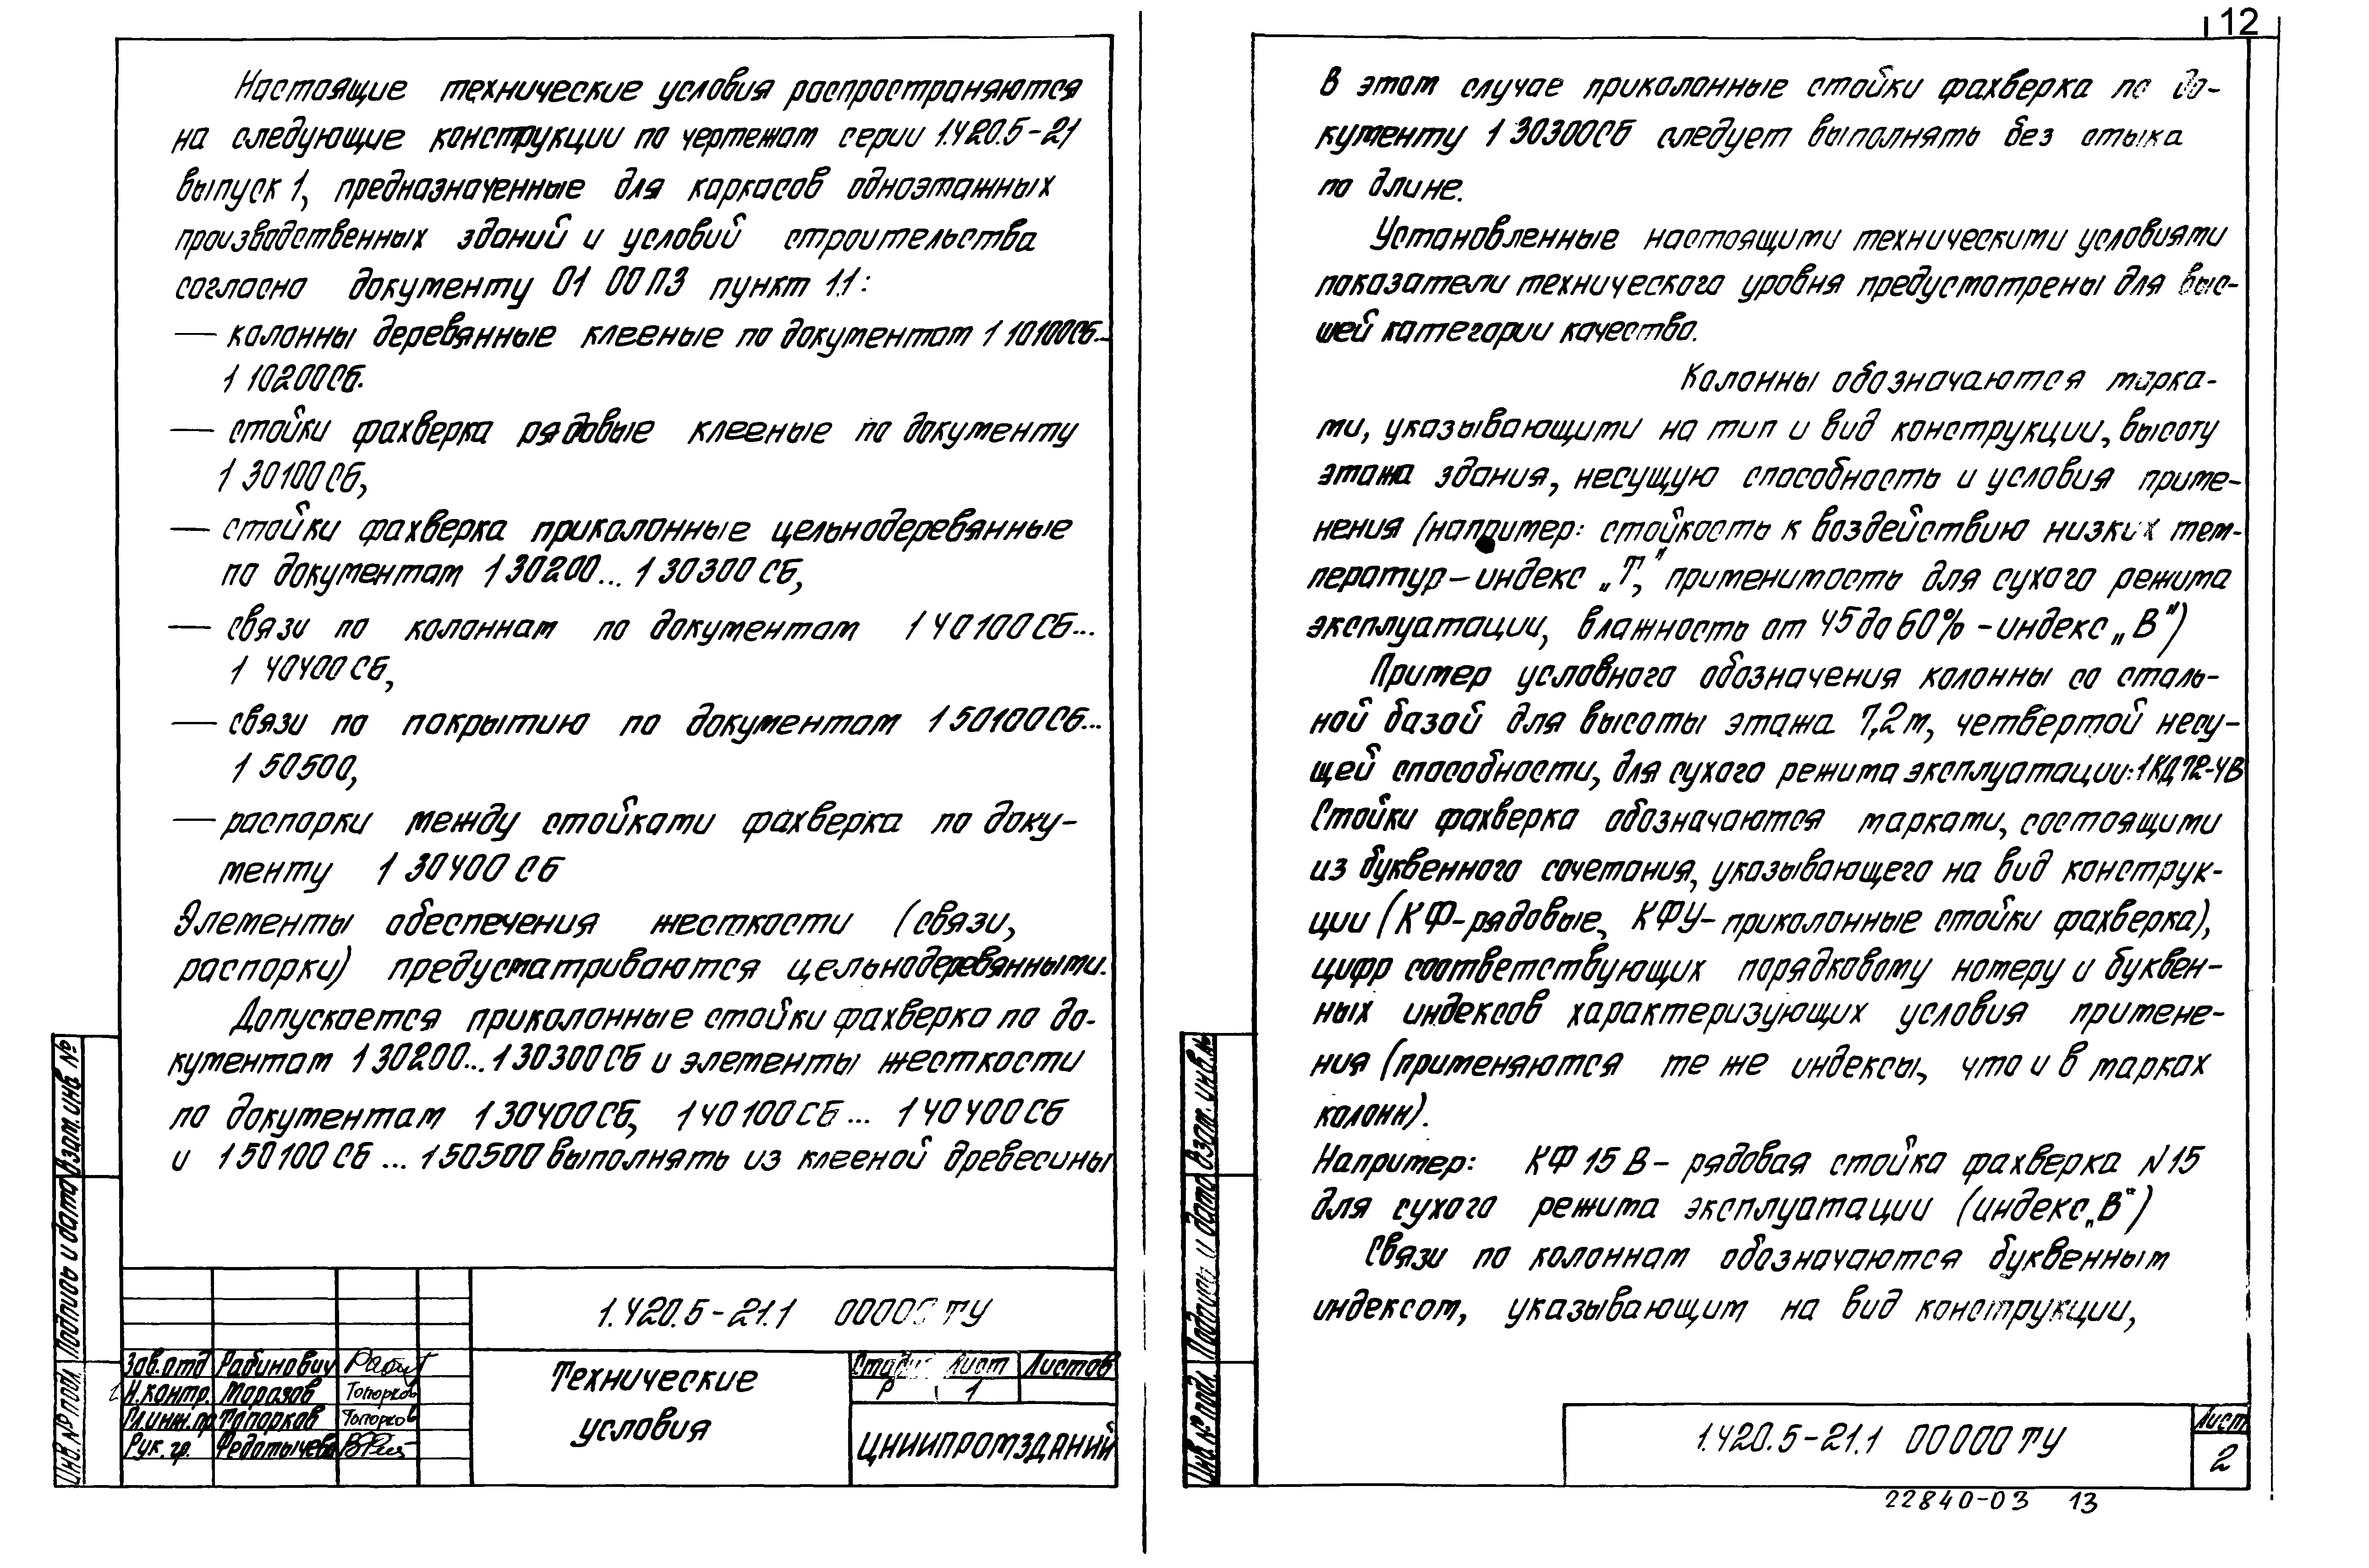 12
Настоящие технические условия распространяются
на следующие конструкции по чертежам серии 1.420.5-21
выпуск 1, предназначенные для каркасов одноэтажных
производственных зданий и условий строительства
согласно документу 01 00 ПЗ пункт 1.1:
— колонны деревянные клееные по документам 1 10100СБ...
1 10200СБ.
— стойки фахверка рядовые клееные по документу
1 30100СБ,
— стойки фахверка приколонные цельнодеревянные
по документам 1 30200... 1 30300 СБ,
— связи по колоннам по документам 1 40100 СБ...
1 40400 СБ,
— связи по покрытию по документам 1 50100 СБ...
1 50500,
— распорки между стойками фахверка по доку-
менту 1 30400 СБ
Элементы обеспечения жесткости (связи,
распорки) предусматриваются цельнодеревянными.
Допускается приколонные стойки фахверка по до-
кументам 1 30200...1 30300 СБ и элементы жесткости
по документам 1 30400 СБ, 1 40100 СБ... 1 40400 СБ
и 1 50100 СБ ... 1 50500 выполнять из клееной древесины
Взам. инв. №
Подпись и дата
Инв. № подл.
1.420.5-21.1 00000 ТУ
Зав. отд Рабинович
Н.контр. Морозов Топорков
Гл.инж.пр Топорков Топорков
Рук. гр. Федотычева
Технические
условия
Стадия Лист Листов
Р 1
ЦНИИПРОМЗДАНИЙ
В этом случае приколонные стойки фахверка по до-
кументу 1 30300СБ следует выполнять без стыка
по длине.
Установленные настоящими техническими условиями
показатели технического уровня предусмотрены для выс-
шей категории качества.
Колонны обозначаются марка-
ми, указывающими на тип и вид конструкции, высоту
этажа здания, несущую способность и условия приме-
нения (например: стойкость к воздействию низких тем-
ператур – индекс „Т", применимость для сухого режима
эксплуатации, влажность от 45 до 60% – индекс „В")
Пример условного обозначения колонны со сталь-
ной базой для высоты этажа 7,2 м, четвертой несу-
щей способности, для сухого режима эксплуатации: 1КД72-4В
Стойки фахверка обозначаются марками, состоящими
из буквенного сочетания, указывающего на вид конструк-
ции (КФ-рядовые, КФУ-приколонные стойки фахверка),
цифр соответствующих порядковому номеру и буквен-
ных индексов характеризующих условия примене-
ния (применяются те же индексы, что и в марках
колонн).
Например: КФ 15 В – рядовая стойка фахверка N 15
для сухого режима эксплуатации (индекс „В")
Связи по колоннам обозначаются буквенным
индексом, указывающим на вид конструкции,
Взам. инв. №
Подпись и дата
Инв. № подл.
1.420.5-21.1 00000 ТУ
Лист
2
22840-03 13